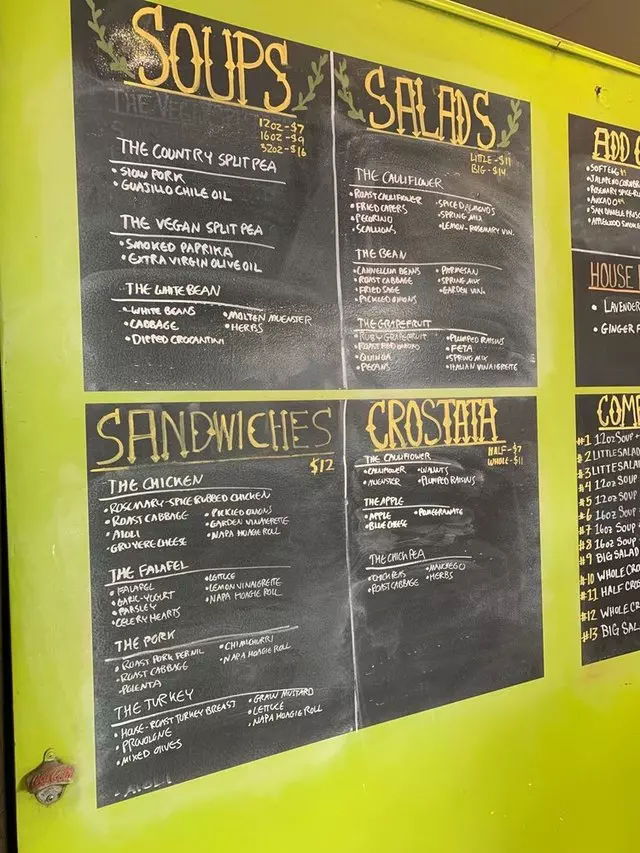 SOUPS
12oz - $7
16oz - $9
32oz - $16
THE COUNTRY SPLIT PEA
• SLOW PORK
• GUAJILLO CHILE OIL
THE VEGAN SPLIT PEA
• SMOKED PAPRIKA
• EXTRA VIRGIN OLIVE OIL
THE WHITE BEAN
• WHITE BEANS
• CABBAGE
• DIPPED CROCANTINI
• MOLTEN MUENSTER
• HERBS
SALADS
LITTLE - $11
BIG - $14
THE CAULIFLOWER
• ROAST CAULIFLOWER
• FRIED CAPERS
• PECORINO
• SCALLIONS
• SPICED ALMONDS
• SPRING MIX
• LEMON-ROSEMARY VIN.
THE BEAN
• CANNELLINI BEANS
• ROAST CABBAGE
• FRIED SAGE
• PICKLED ONIONS
• PARMESAN
• SPRING MIX
• GARDEN VIN.
THE GRAPEFRUIT
• RUBY GRAPEFRUIT
• ROAST RED ONIONS
• QUINOA
• PECANS
• PLUMPED RAISINS
• FETA
• SPRING MIX
• ITALIAN VINAIGRETTE
SANDWICHES
$12
THE CHICKEN
• ROSEMARY-SPICE RUBBED CHICKEN
• ROAST CABBAGE
• AIOLI
• GRUYERE CHEESE
• PICKLED ONIONS
• GARDEN VINAIGRETTE
• NAPA HOAGIE ROLL
THE FALAFEL
• FALAFEL
• GARLIC-YOGURT
• PARSLEY
• CELERY HEARTS
• LETTUCE
• LEMON VINAIGRETTE
• NAPA HOAGIE ROLL
THE PORK
• ROAST PORK PERNIL
• ROAST CABBAGE
• POLENTA
• CHIMICHURRI
• NAPA HOAGIE ROLL
THE TURKEY
• HOUSE-ROAST TURKEY BREAST
• PROVOLONE
• MIXED OLIVES
• GRAIN MUSTARD
• LETTUCE
• NAPA HOAGIE ROLL
- AIOLI
CROSTATA
HALF - $7
WHOLE - $11
THE CAULIFLOWER
• CAULIFLOWER
• MUENSTER
• WALNUTS
• PLUMPED RAISINS
THE APPLE
• APPLE
• BLUE CHEESE
• POMEGRANATE
THE CHICKPEA
• CHICKPEAS
• ROAST CABBAGE
• MANCHEGO
• HERBS
ADD
• SOFT EGG
• JALAPENO CORNBR
• ROSEMARY SPICE-RU
• AVOCADO
• SAN DANIELE PROS
• APPLEWOOD SMOKE
HOUSE
• LAVENDER
• GINGER F
COM
#1 12oz SOUP +
#2 LITTLE SALAD
#3 LITTLE SALA
#4 12oz SOUP
#5 12oz SOUP
#6 16oz SOUP +
#7 16oz SOUP
#8 16oz SOUP
#9 BIG SALAD
#10 WHOLE CRO
#11 HALF CROS
#12 WHOLE CR
#13 BIG SAL
Coca-Cola